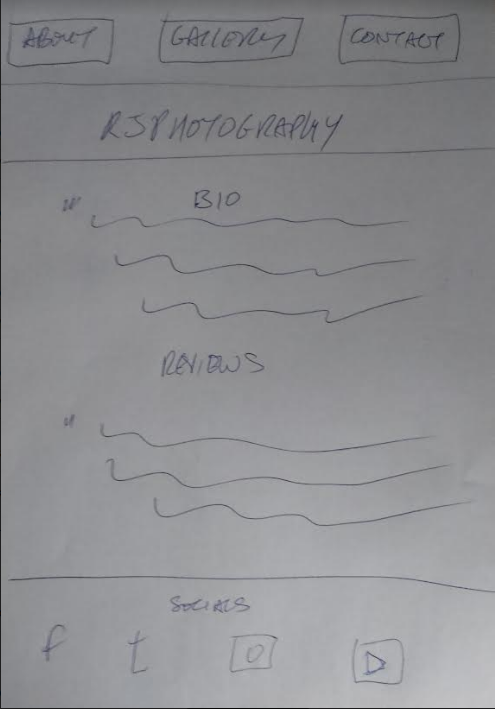 ABOUT GALLERY CONTACT
RJPHOTOGRAPHY
BIO
REVIEWS
SOCIALS
f t